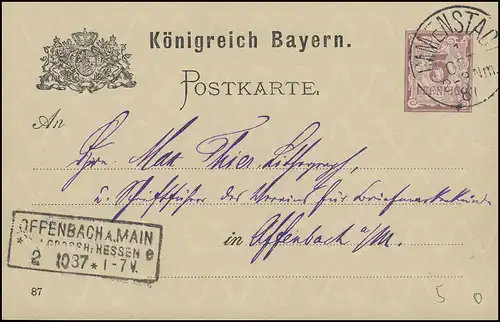 Königreich Bayern.
POSTKARTE.
5
PFENNIG
An
Herrn Max Thier, Lithograph,
u. Schriftführer des Vereins für Briefmarkenkunde
in Offenbach a/M.
OFFENBACH A. MAIN
GROSSH: HESSEN e
2 1087 * 1-7 V.
87
5 0